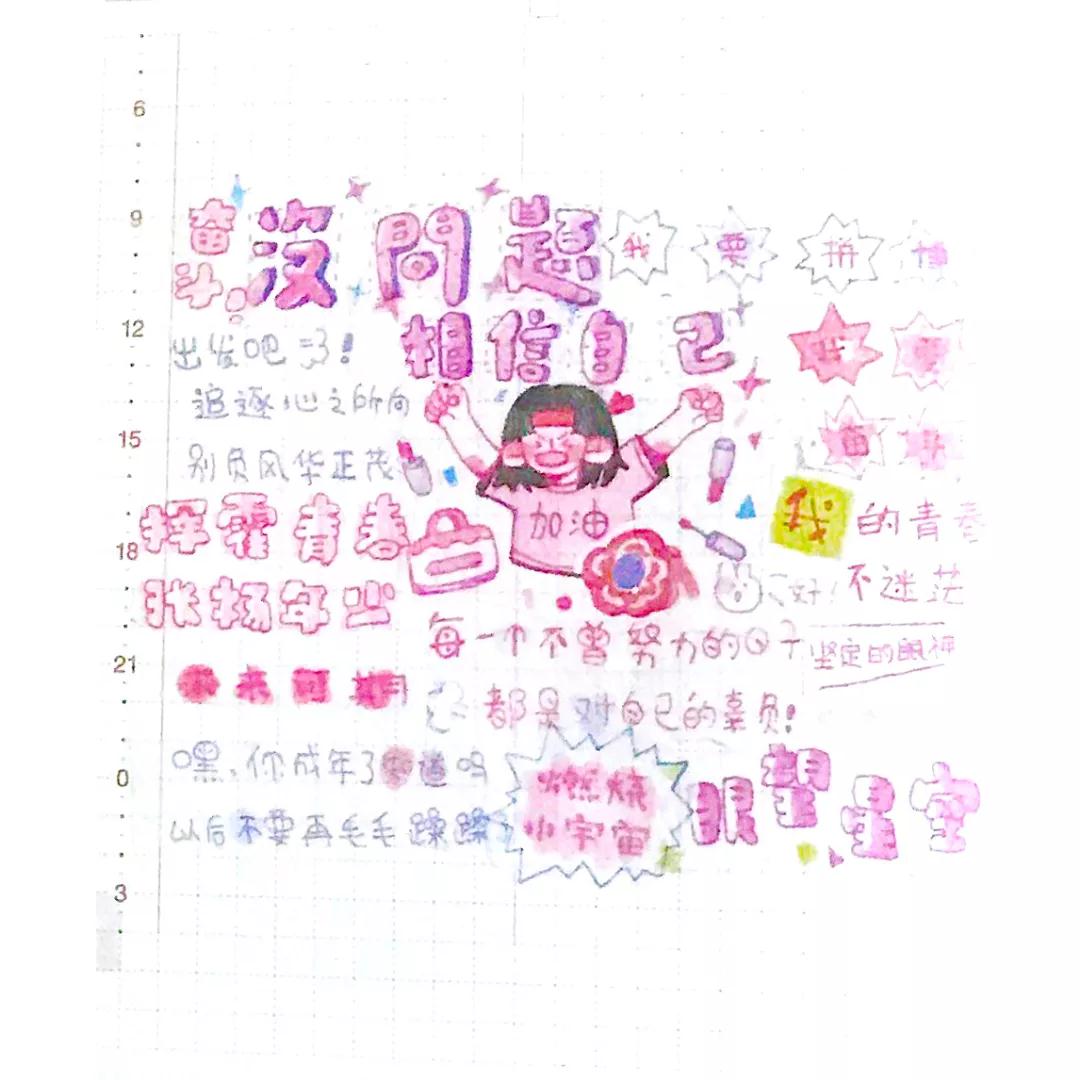 6
9
12
15
18
21
0
3
奋斗
沒問題
相信自己
我要拼
出发吧 =3!
追逐心之所向
别负风华正茂
挥霍青春
张扬年少
未来可期
加油
我的青春
好!不迷茫
坚定的眼神
每一个不曾努力的日子
都是对自己的辜负!
嘿,你成年了知道吗
以后不要再毛毛躁躁
燃烧
小宇宙
眼望星空